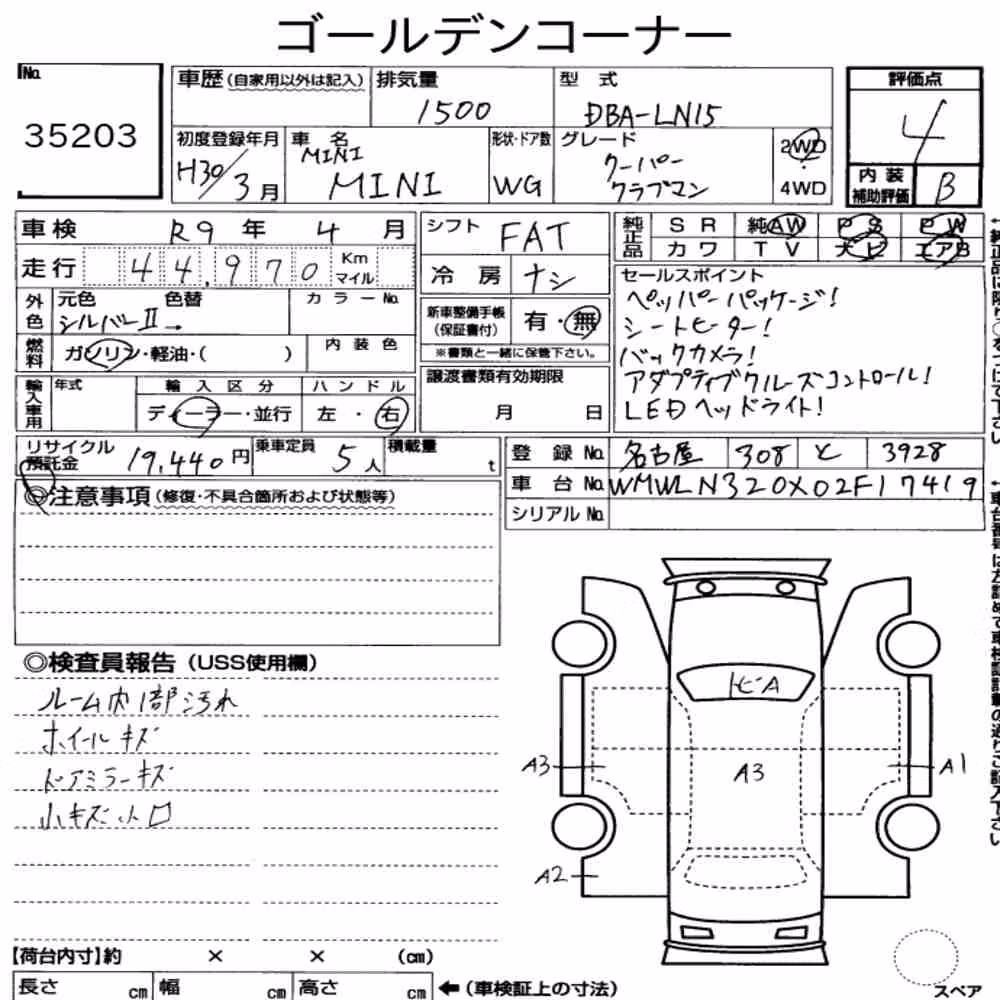 ゴールデンコーナー
No.
35203
車歴(自家用以外は記入)
排気量
1500
型 式
DBA-LN15
評価点
4
初度登録年月
H30/3月
車 名
MINI
MINI
形状・ドア数
WG
グレード
クーパー
クラブマン
2WD
・
4WD
内 装
補助評価
B
車検 R9年 4月
走行 44,970 Km
マイル
シフト FAT
冷 房 ナシ
純正品
S R 純AW P S P W
カ ワ T V ナビ エアB
外色
元色 色替
シルバーII→
カラーNo.
燃料
ガソリン・軽油・( )
内 装 色
新車整備手帳
(保証書付)
有・無
※書類と一緒に保管下さい。
セールスポイント
ペッパーパッケージ!
シートヒーター!
バックカメラ!
アダプティブクルーズコントロール!
LEDヘッドライト!
輸入車用
年式
輸 入 区 分
ディーラー・並行
ハ ン ド ル
左 ・ 右
譲渡書類有効期限
月 日
リサイクル
預託金
19,440円
乗車定員
5人
積載量
t
登 録 No. 名古屋 308 と 3928
車 台 No. WMWLN320X02F17419
シリアル No.
◎注意事項(修復・不具合箇所および状態等)
◎検査員報告(USS使用欄)
ルーム内1部汚れ
ホイールキズ
ドアミラーキズ
小キズ小凹
トビA
A3
A3
A1
A2
【荷台内寸】約 × × (cm)
長さ cm 幅 cm 高さ cm
←(車検証上の寸法)
スペア